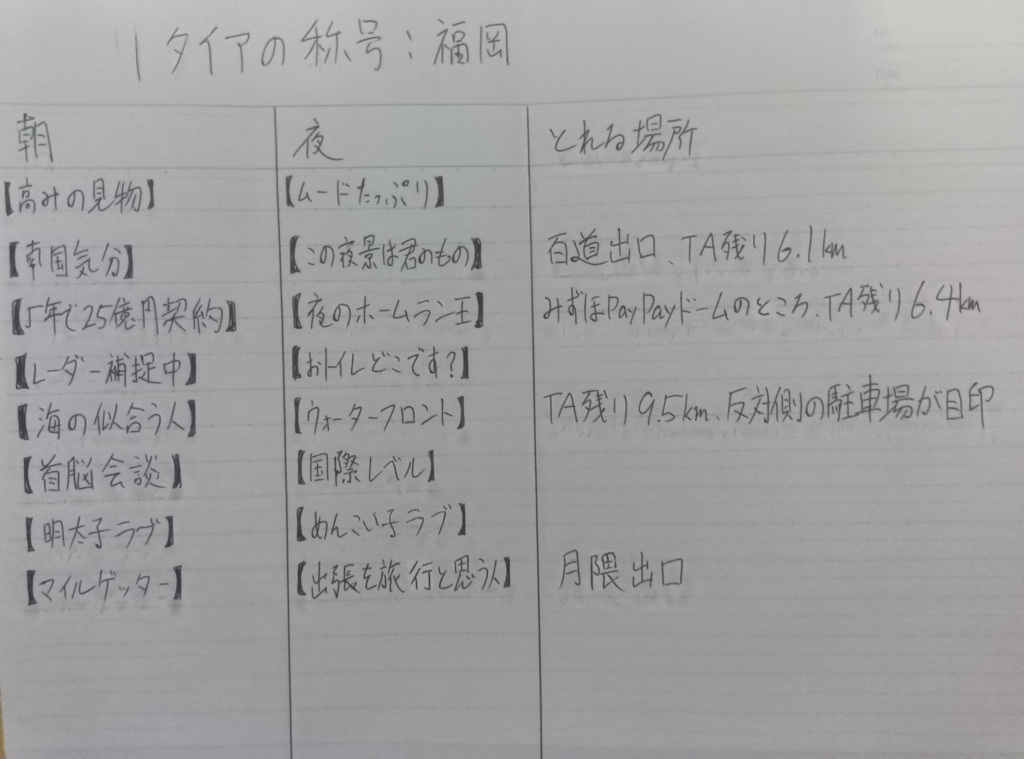 リタイアの称号：福岡
朝 夜 とれる場所
【高みの見物】 【ムードたっぷり】
【南国気分】 【この夜景は君のもの】 百道出口、TA残り6.1km
【5年で25億円契約】 【夜のホームラン王】 みずほPayPayドームのところ、TA残り6.4km
【レーダー補捉中】 【おトイレどこです？】
【海の似合う人】 【ウォーターフロント】 TA残り9.5km、反対側の駐車場が目印
【首脳会談】 【国際レベル】
【明太子ラブ】 【めんこい子ラブ】
【マイルゲッター】 【出張を旅行と思う人】 月隈出口
No.
Date